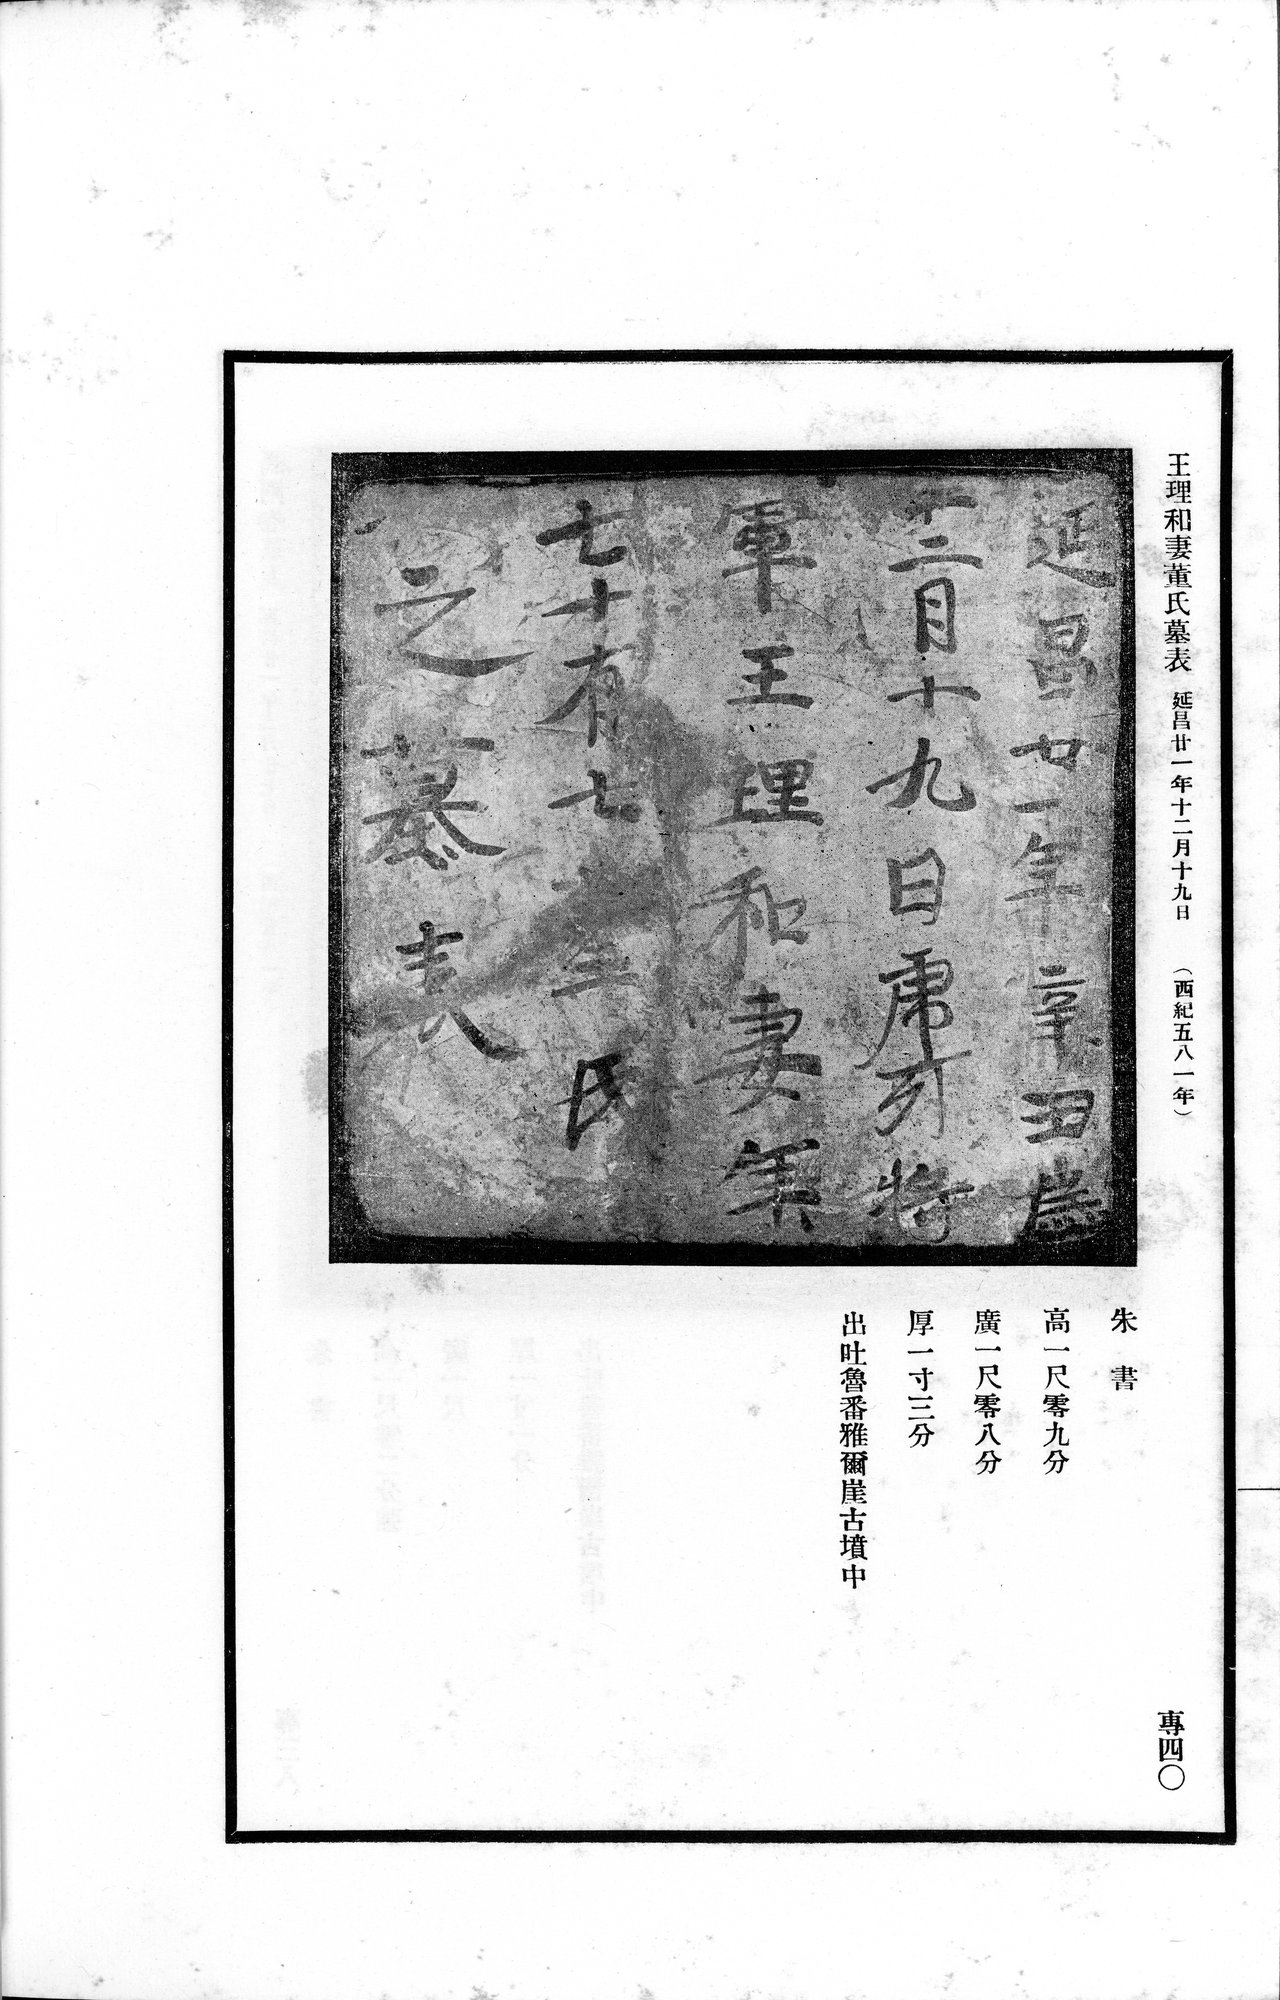 王理和妻董氏墓表 延昌廿一年十二月十九日 （西紀五八一年）
延昌廿一年辛丑歲
十二月十九日虎牙將
軍王理和妻年
七十有七董氏
之墓表
朱書
高一尺零九分
廣一尺零八分
厚一寸三分
出吐魯番雅爾崖古墳中
專四〇